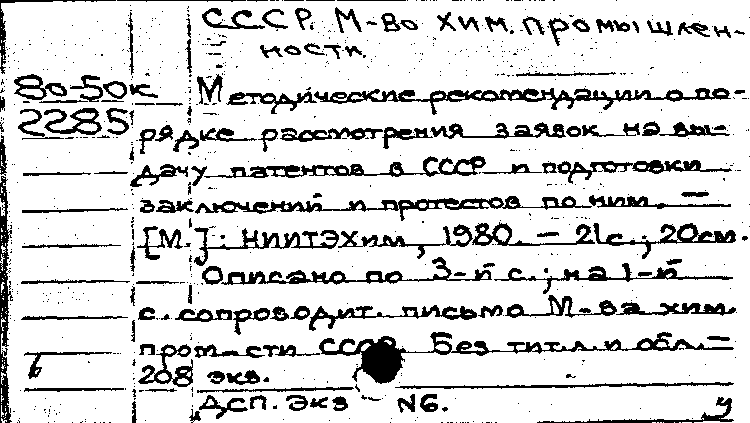 СССР. М-во хим. промышлен-
ности.
80-50к
2285
Методические рекомендации о по-
рядке рассмотрения заявок на вы-
дачу патентов в СССР и подготовки
заключений и протестов по ним. —
[М.]: НИИТЭХим, 1980. — 21с.; 20см.
Описано по 3-й с.; на 1-й
с. сопроводит. письмо М-ва хим.
пром-сти СССР. Без тит.л. и обл. —
208 экз.
ДСП. Экз N6.